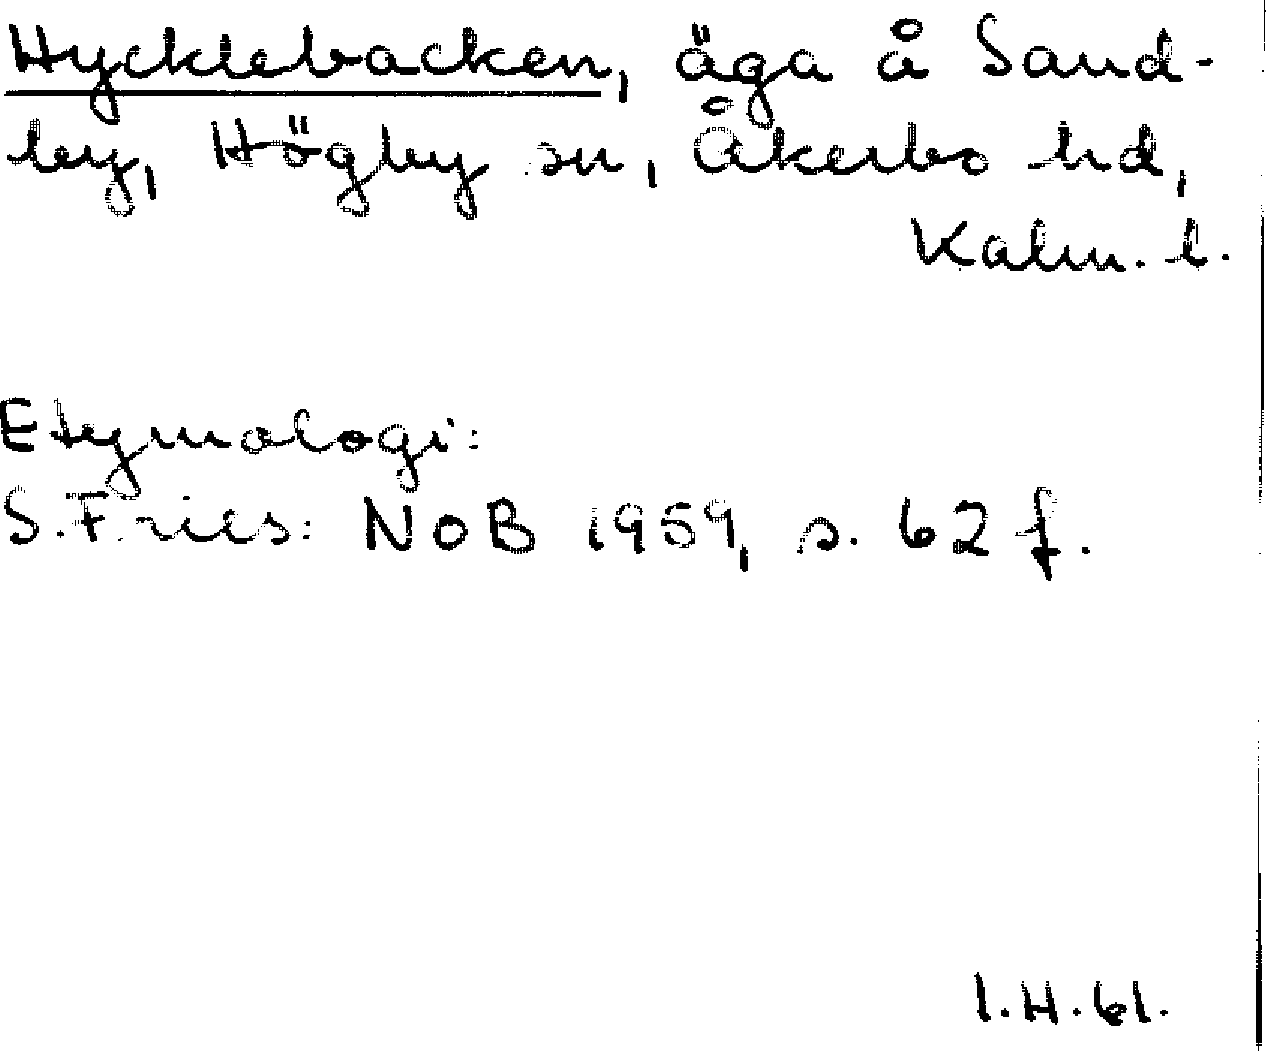 Hycklebacken, äga å Sand-
by, Högby sn, Åkerbo hd,
Kalm. l.
Etymologi:
S. Fries: NoB 1959, s. 62 f.
I.H.61.